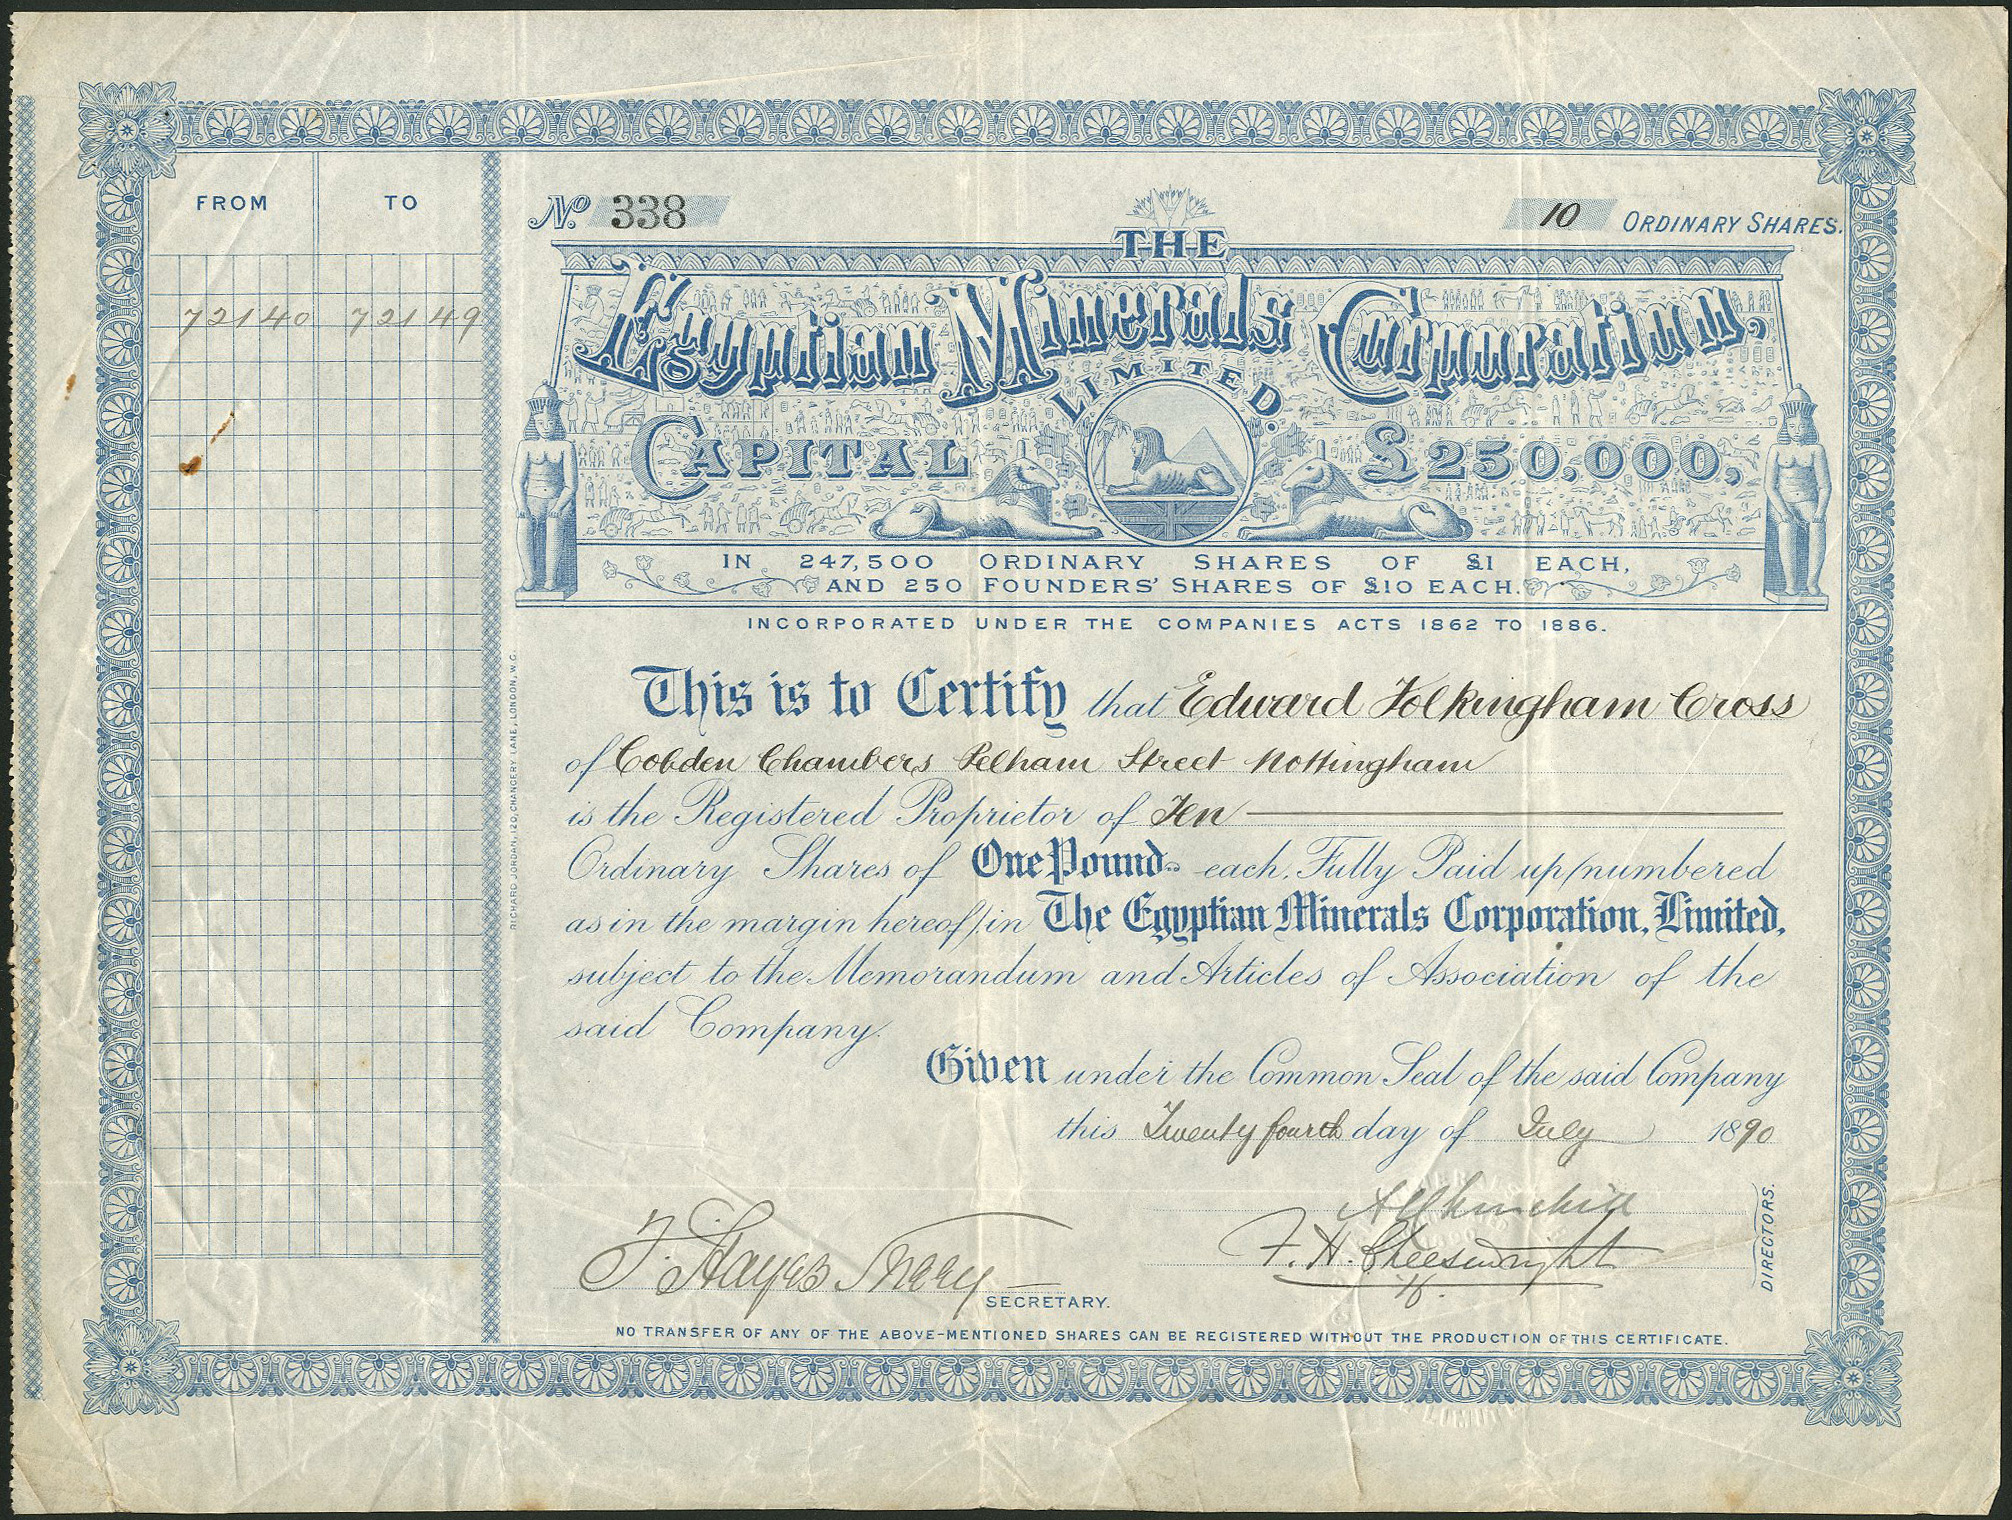 FROM TO
72140 72149
No 338
10 ORDINARY SHARES.
THE
Egyptian Minerals Corporation,
LIMITED.
CAPITAL £250,000,
IN 247,500 ORDINARY SHARES OF £1 EACH,
AND 250 FOUNDERS' SHARES OF £10 EACH.
INCORPORATED UNDER THE COMPANIES ACTS 1862 TO 1886.
This is to Certify that Edward Folkingham Cross
of Cobden Chambers Pelham Street Nottingham
is the Registered Proprietor of Ten
Ordinary Shares of One Pound each, Fully Paid up (numbered
as in the margin hereof) in The Egyptian Minerals Corporation, Limited,
subject to the Memorandum and Articles of Association of the
said Company.
Given under the Common Seal of the said Company
this Twenty fourth day of July 1890
F. H. Cheeswright
DIRECTORS.
F. Hayes
SECRETARY.
NO TRANSFER OF ANY OF THE ABOVE-MENTIONED SHARES CAN BE REGISTERED WITHOUT THE PRODUCTION OF THIS CERTIFICATE.
RICHARD JORDAN, 120, CHANCERY LANE, LONDON, W.C.